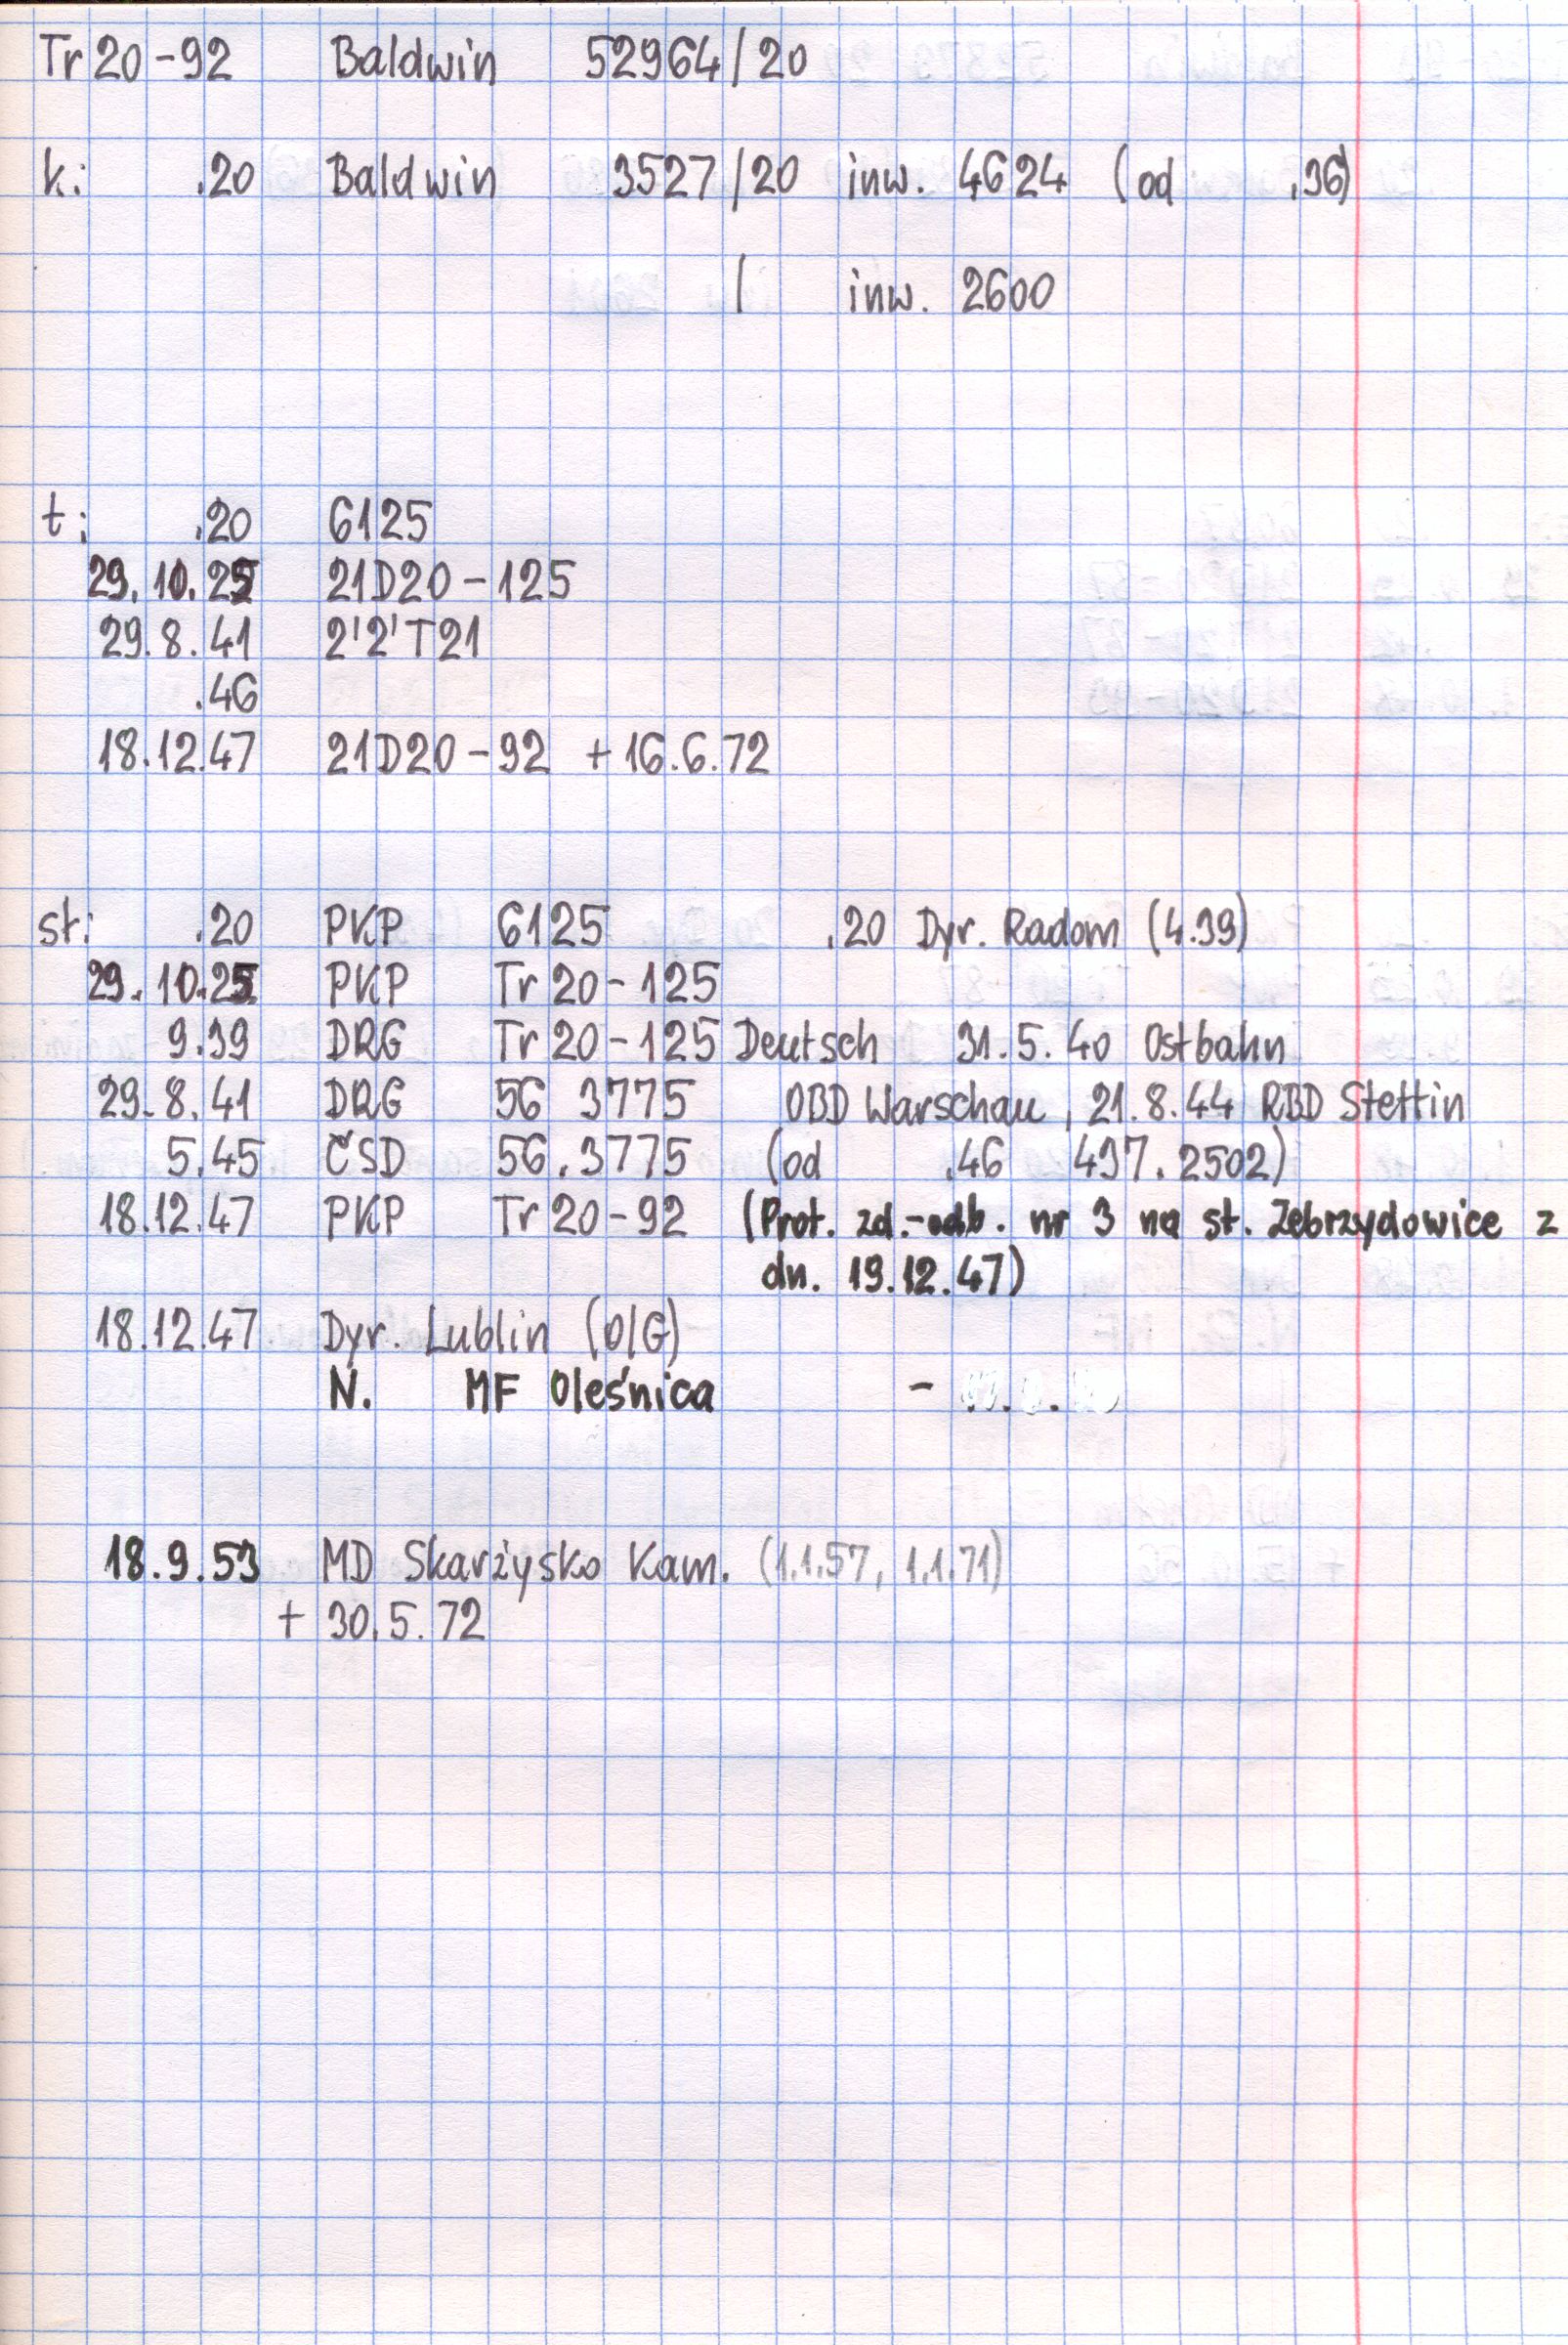 Tr 20-92 Baldwin 52964/20
k: .20 Baldwin 3527/20 inw. 4624 (od .36)
/ inw. 2600
t: .20 6125
29.10.25 21D20-125
29.8.41 2'2'T21
.46
18.12.47 21D20-92 +16.6.72
st: .20 PKP 6125 .20 Dyr. Radom (4.39)
29.10.25 PKP Tr 20-125
9.39 DRG Tr 20-125 Deutsch 31.5.40 Ostbahn
29.8.41 DRG 56 3775 OBD Warschau, 21.8.44 RBD Stettin
5.45 ČSD 56.3775 (od .46 497.2502)
18.12.47 PKP Tr 20-92 (Prot. zd.-odb. nr 3 na st. Zebrzydowice z
dn. 19.12.47)
18.12.47 Dyr. Lublin (O/G)
N. MF Oleśnica -
18.9.53 MD Skarżysko Kam. (1.1.57, 1.1.71)
+ 30.5.72